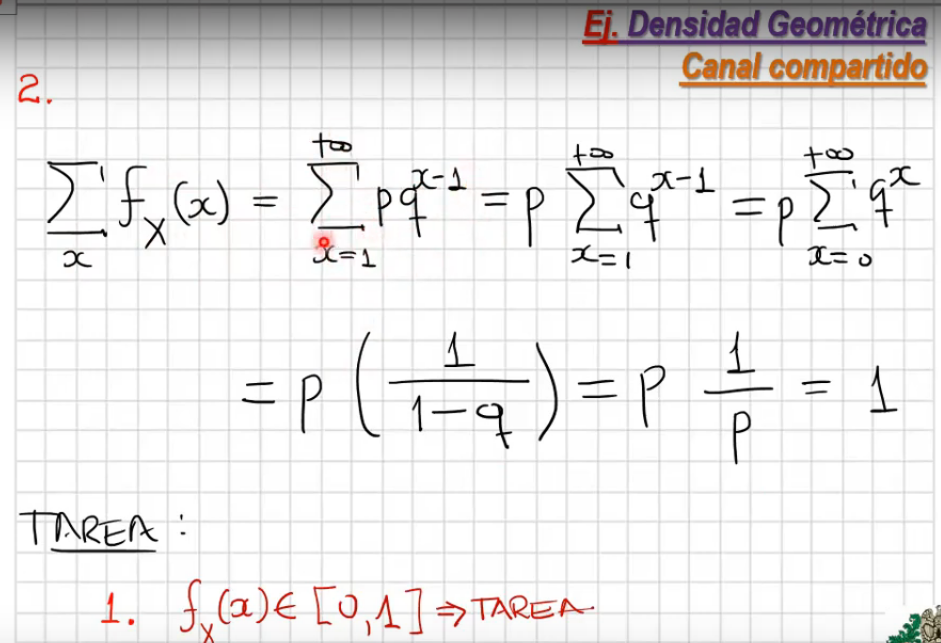 Ej. Densidad Geométrica
Canal compartido
2.
∑ₓ f_X(x) = ∑_{x=1}^{+∞} pq^{x-1} = p ∑_{x=1}^{+∞} q^{x-1} = p ∑_{x=0}^{+∞} q^x
= p (1/(1-q)) = p 1/p = 1
TAREA:
1. f_X(x) ∈ [0,1] ⇒ TAREA